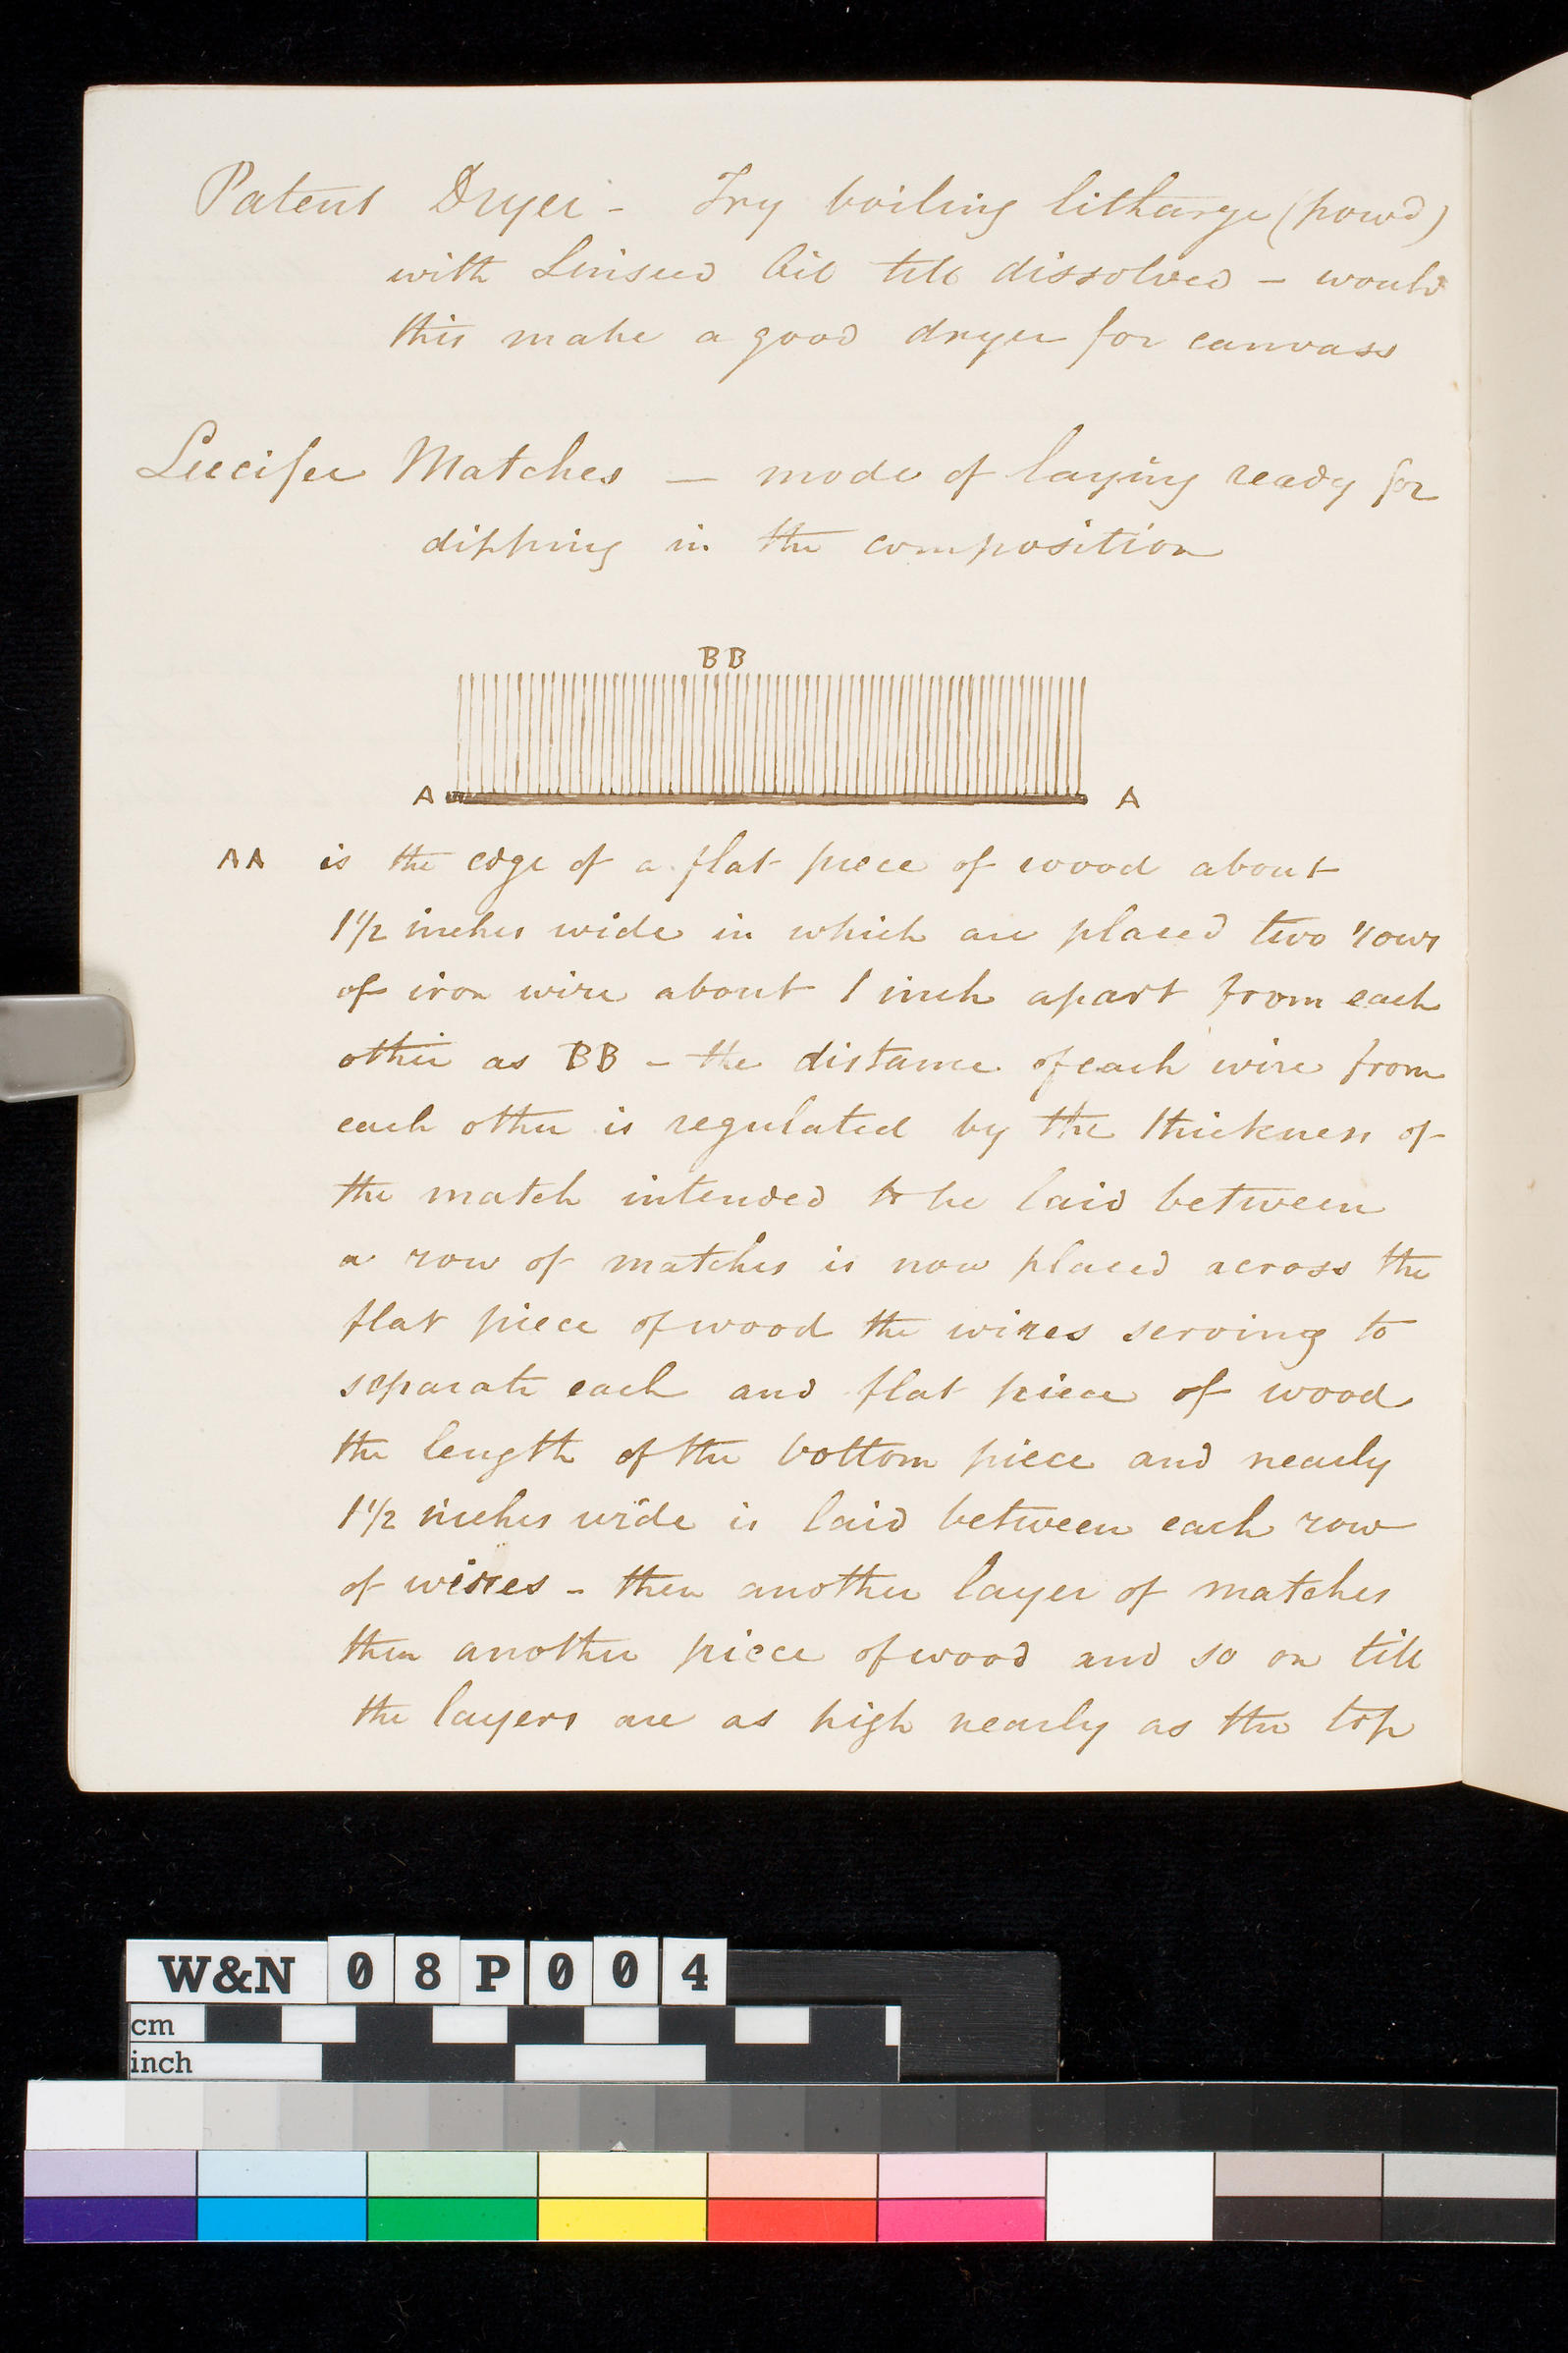 Patent Dryer - Try boiling litharge (powd)
with Linseed Oil till dissolved - would
this make a good dryer for canvass
Lucifer Matches — mode of laying ready for
dipping in the composition
BB
A A
AA is the edge of a flat piece of wood about
1 1/2 inches wide in which are placed two rows
of iron wire about 1 inch apart from each
other as BB - the distance of each wire from
each other is regulated by the thickness of
the match intended to be laid between
a row of matches is now placed across the
flat piece of wood the wires serving to
separate each and flat piece of wood
the length of the bottom piece and nearly
1 1/2 inches wide is laid between each row
of wires - then another layer of matches
then another piece of wood and so on till
the layers are as high nearly as the top
W&N 08P004
cm
inch